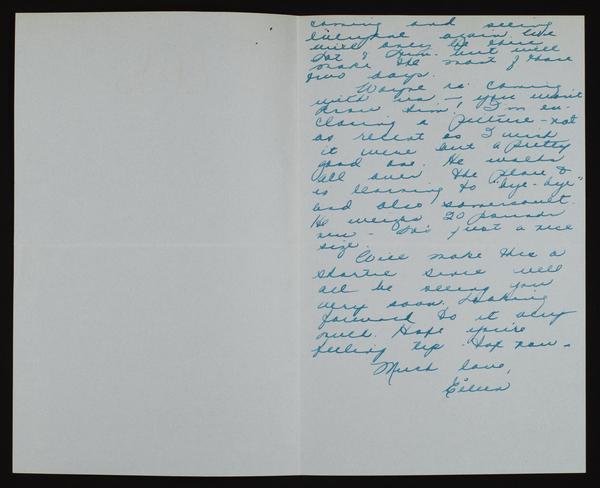 coming and seeing
everyone again. We
will only be there
Sat & Sun. but will
make the most of those
two days.
Wayne is coming
with us - you won't
know him! I'm en-
closing a picture - not
as recent as I wish
it were but a pretty
good one. He walks
all over the place &
is learning to "bye-bye"
and also somersault.
He weighs 20 pounds
now - so's just a nice
size.
Will make this a
shortie since we'll
all be seeing you
very soon. Looking
forward to it very
much. Hope you're
feeling tip top now -
Much love,
Eileen